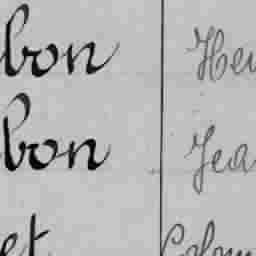 bon Hen
bon Jea
et Colom